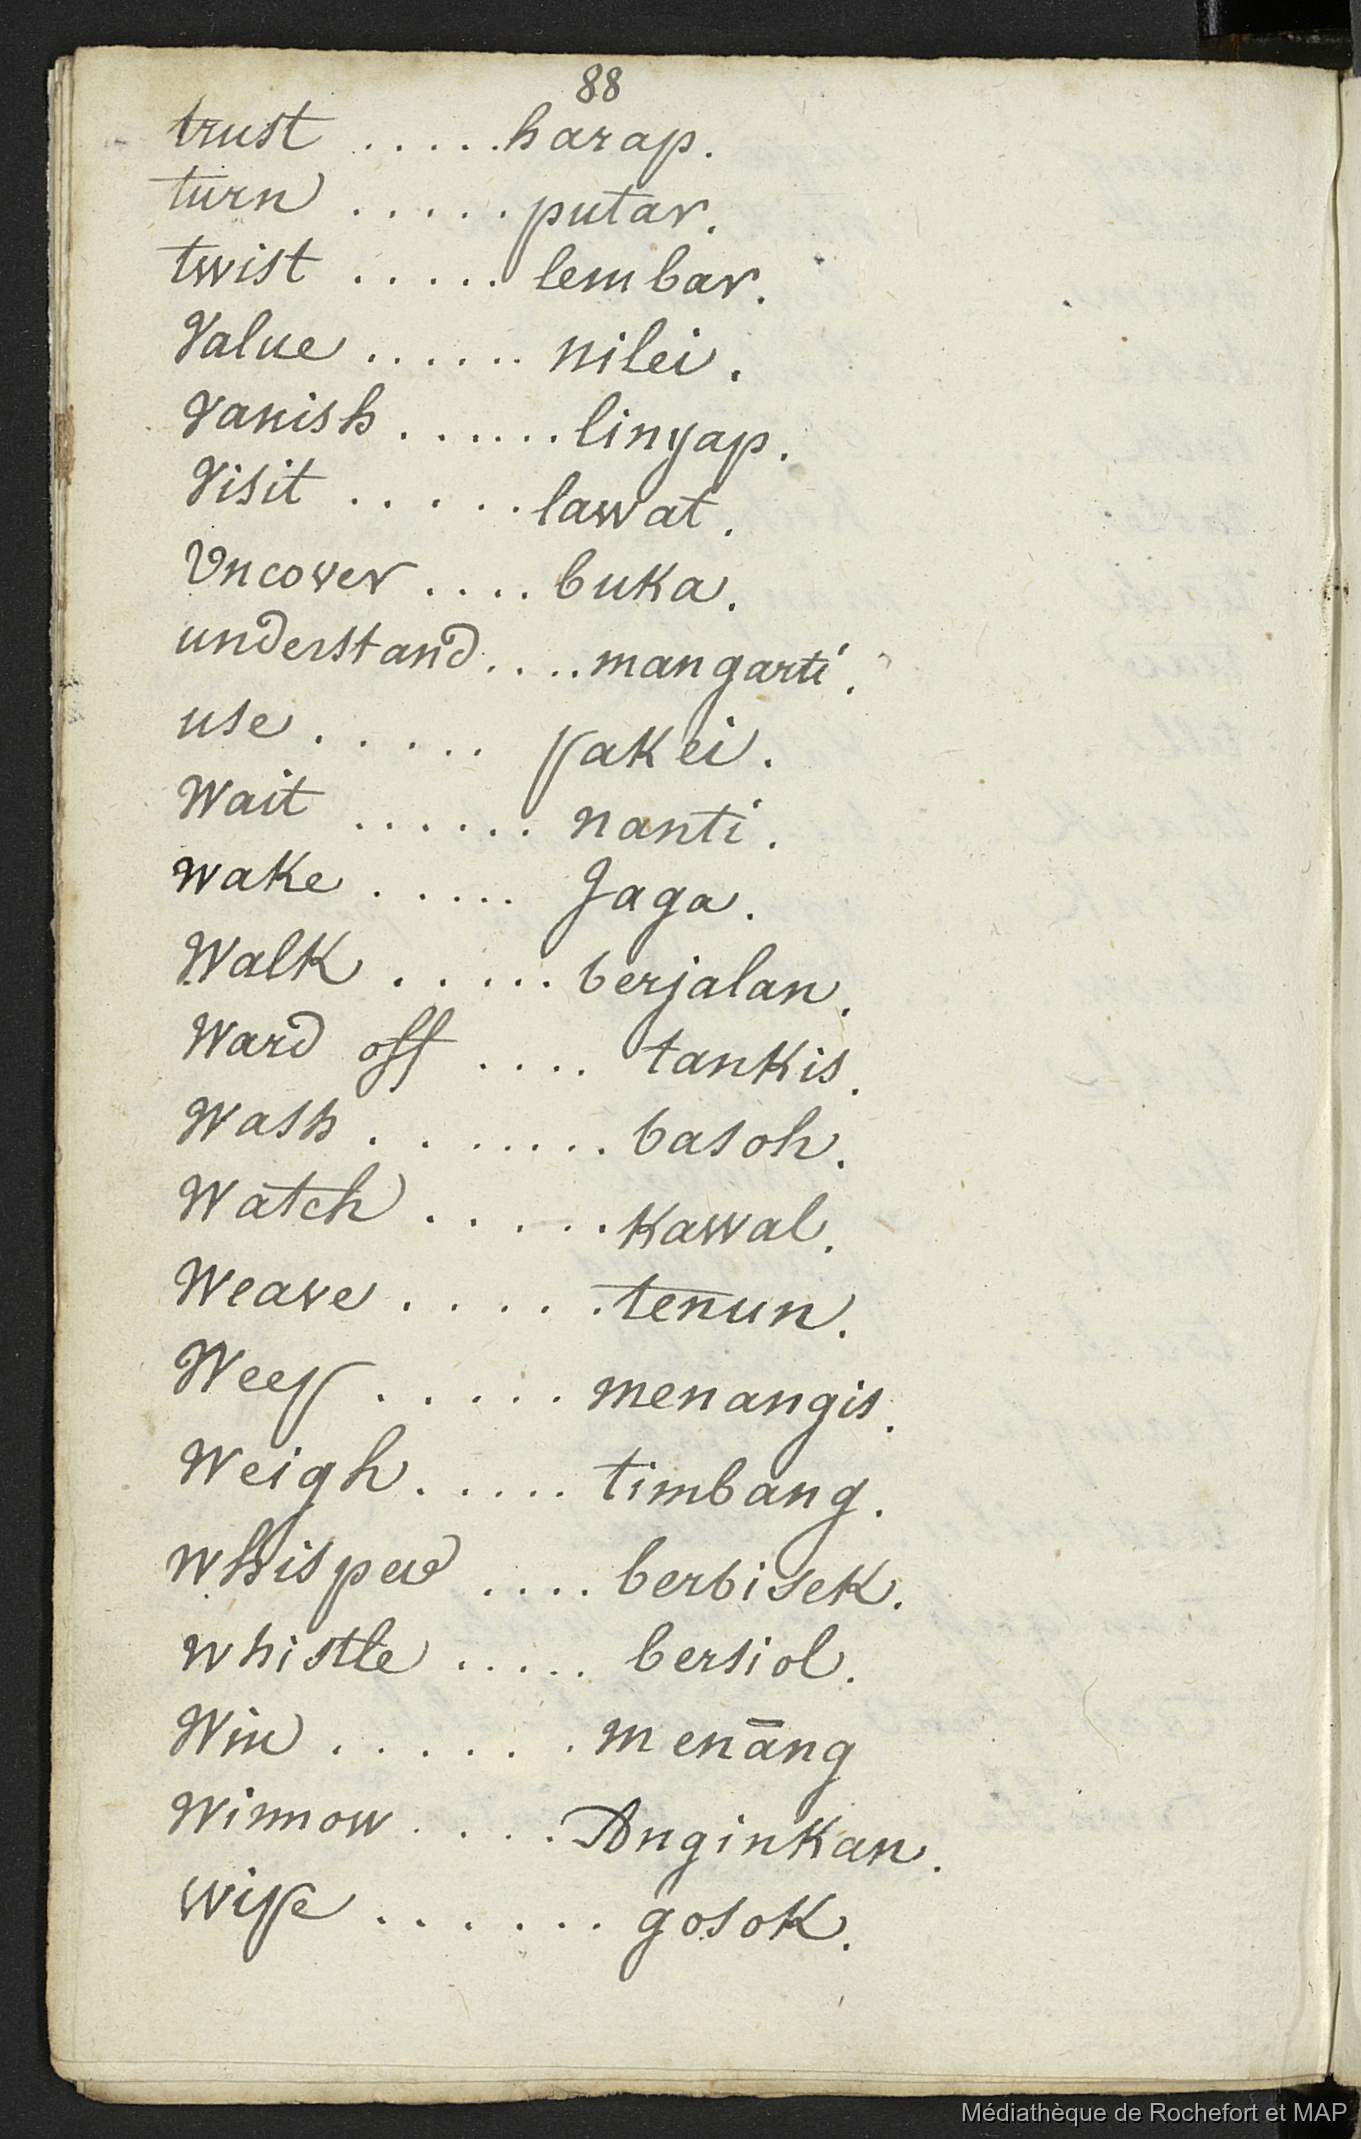 88
trust ..... harap.
turn ..... putar.
twist ..... lembar.
Value ...... nilei.
vanish ...... linyap.
Visit ..... lawat.
Uncover .... buka.
understand .... mangarti.
use ..... pakei.
Wait ...... nanti.
wake ..... Jaga.
Walk ..... berjalan.
Ward off .... tankis.
Wash ....... basoh.
Watch ..... Kawal.
Weave ..... tenun.
Weep ..... menangis.
Weigh ..... timbang.
whisper .... berbisek.
whistle ..... bersiol.
Win ...... menāng
winnow .... Anginkan.
wipe ...... gosok.
Médiathèque de Rochefort et MAP